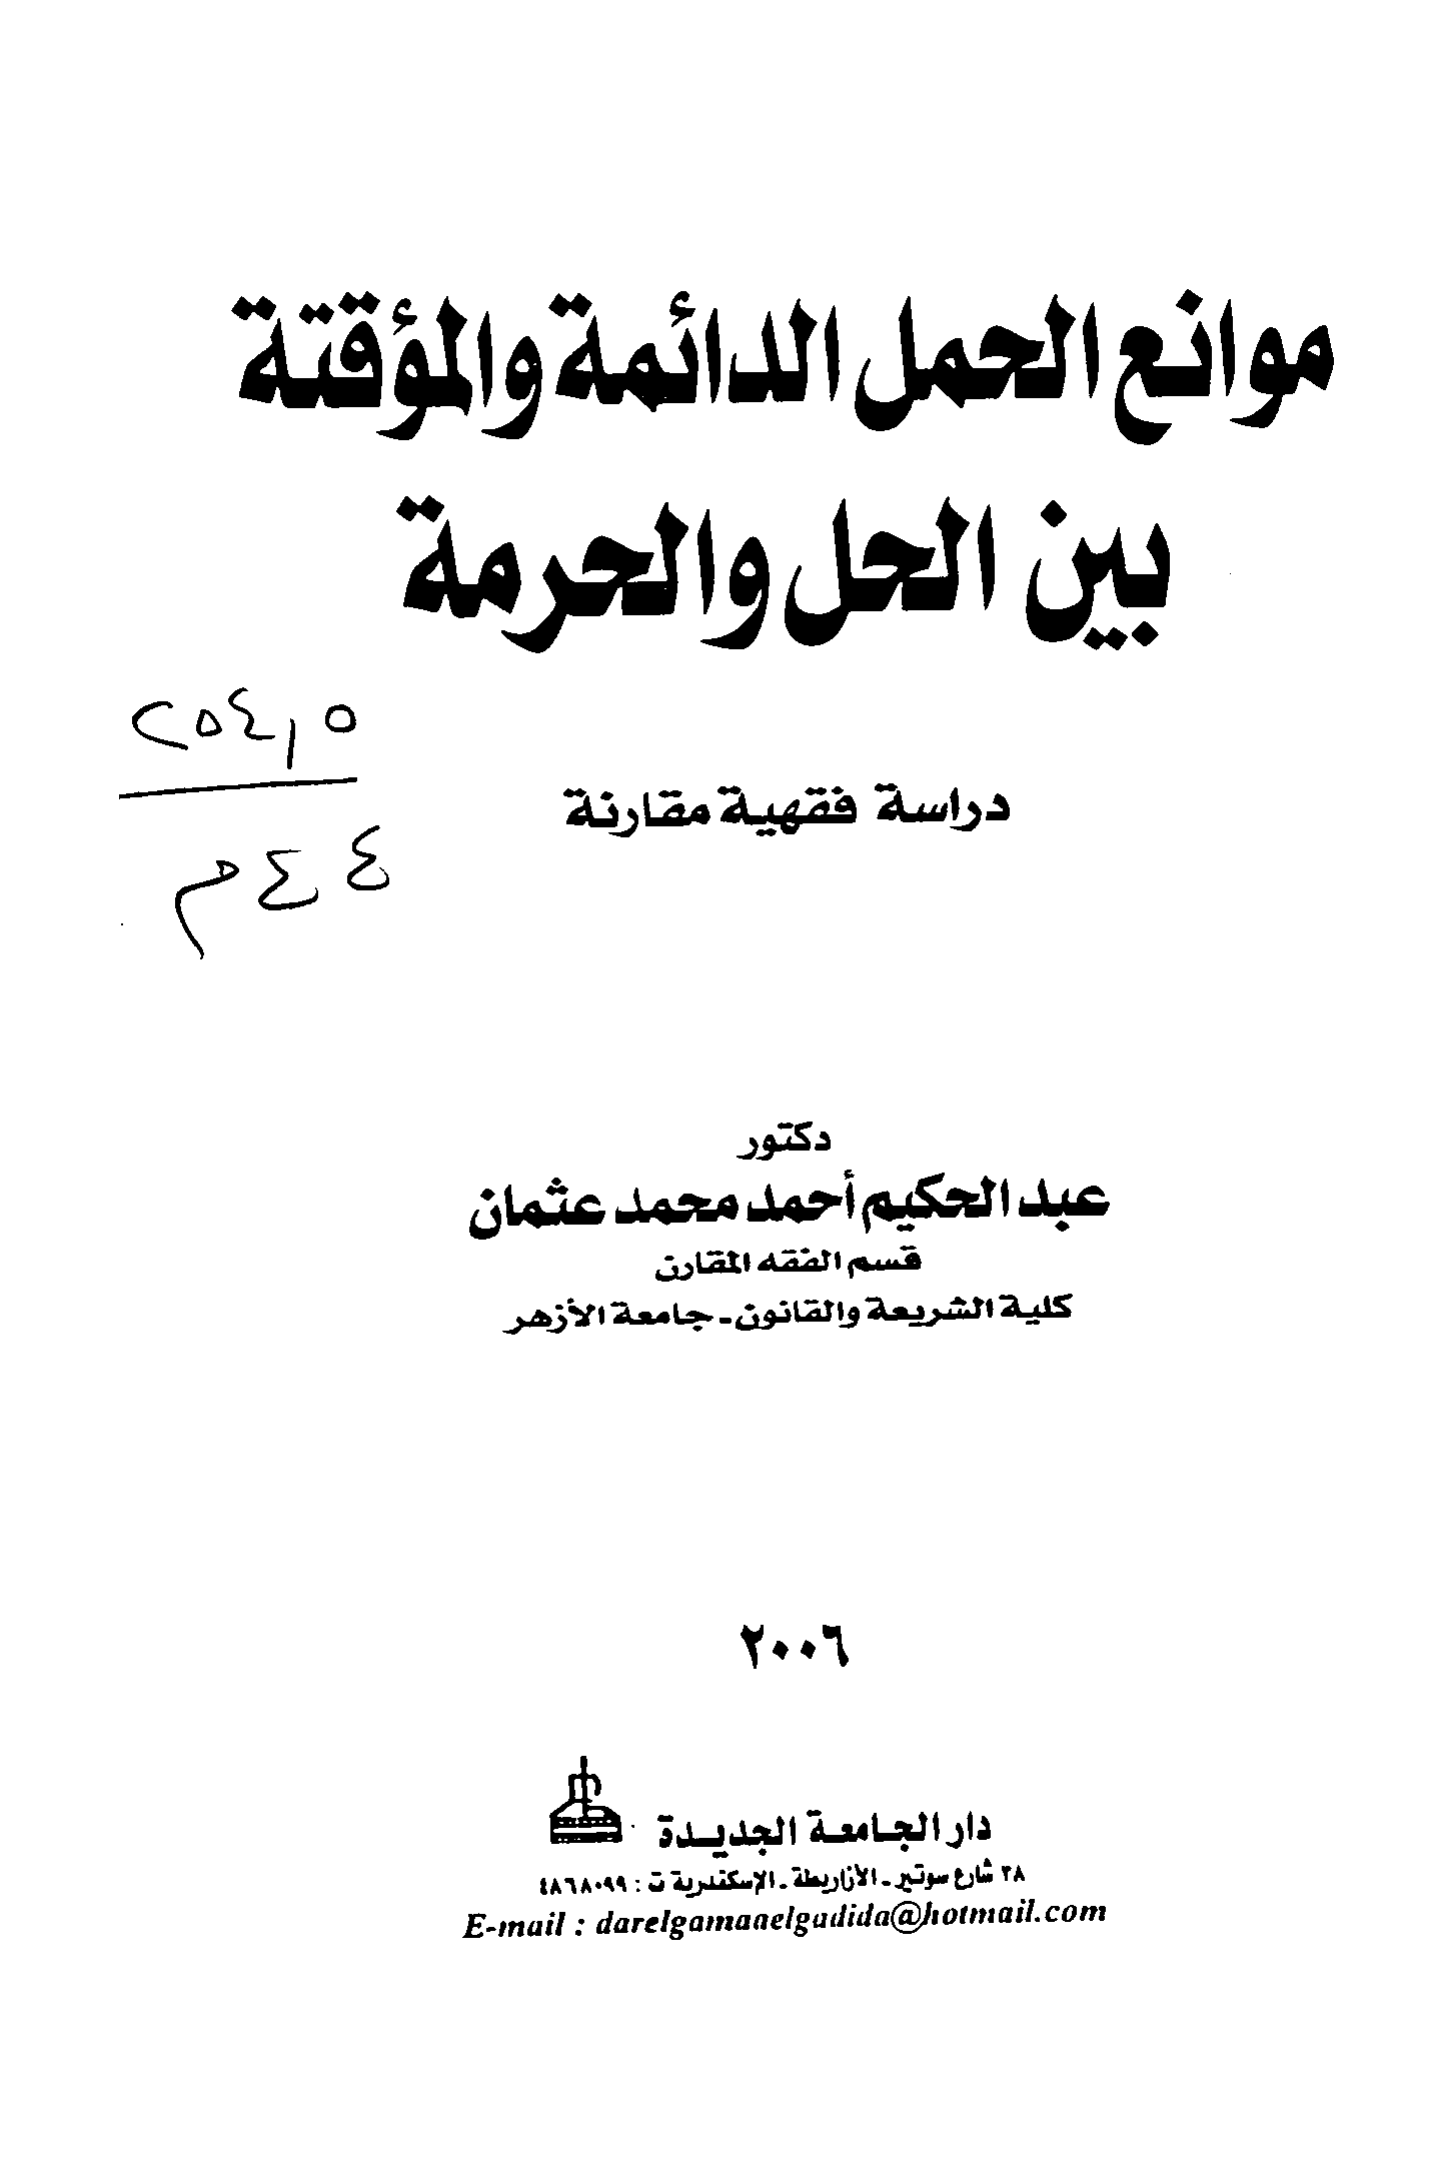 موانع الحمل الدائمة والمؤقتة
بين الحل والحرمة
٢٥٤,٥
دراسة فقهية مقارنة
٤ ٤ م
دكتور
عبد الحكيم أحمد محمد عثمان
قسم الفقه المقارن
كلية الشريعة والقانون ـ جامعة الأزهر
٢٠٠٦
دار الجامعة الجديدة
٣٨ شارع سوتير ـ الأزاريطة ـ الإسكندرية ت : ٤٨٦٨٠٩٩
E-mail : darelgamaaelgadida@hotmail.com